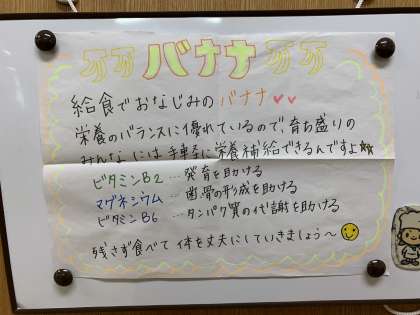 バナナ
給食でおなじみのバナナ♥♥
栄養のバランスに優れているので、育ち盛りの
みんなには手軽に栄養補給できるんですよ☆☆
ビタミンB2…発育を助ける
マグネシウム…歯骨の形成を助ける
ビタミンB6…タンパク質の代謝を助ける
残さず食べて体を丈夫にしていきましょう〜